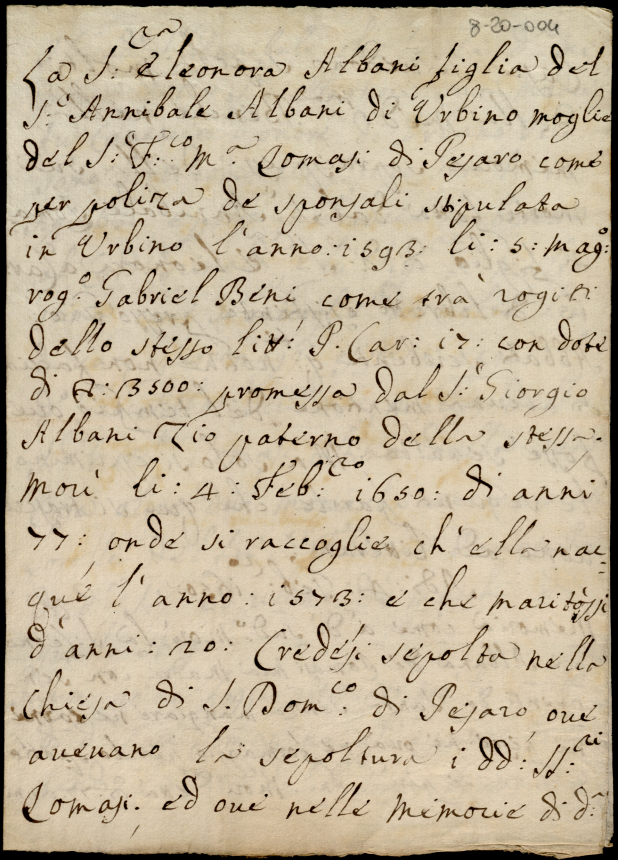 8-20-004
La S:ra Eleonora Albani figlia del
S:e Annibale Albani di Urbino moglie
del S:e F:co M:a Lomasi di Pesaro come
per poliza de sponsali stipulata
in Urbino l'anno: 1593: li: 5: Mag:o
rog:o Gabriel Beni come trà rogiti
dello stesso litt:a P. Car: 17: con dote
di 3500: promessa dal S:e Giorgio
Albani Zio paterno della stessa.
Morì li: 4: Feb:ro 1650: di anni
77: onde si raccoglie ch'ella nac-
què l'anno: 1573: e che maritòssi
d'anni: 20: Credesi sepolta nella
Chiesa di S. Dom:co di Pesaro, ove
avevano la sepoltura i dd: SS:ri
Lomasi, ed ove nelle memorie di d:a